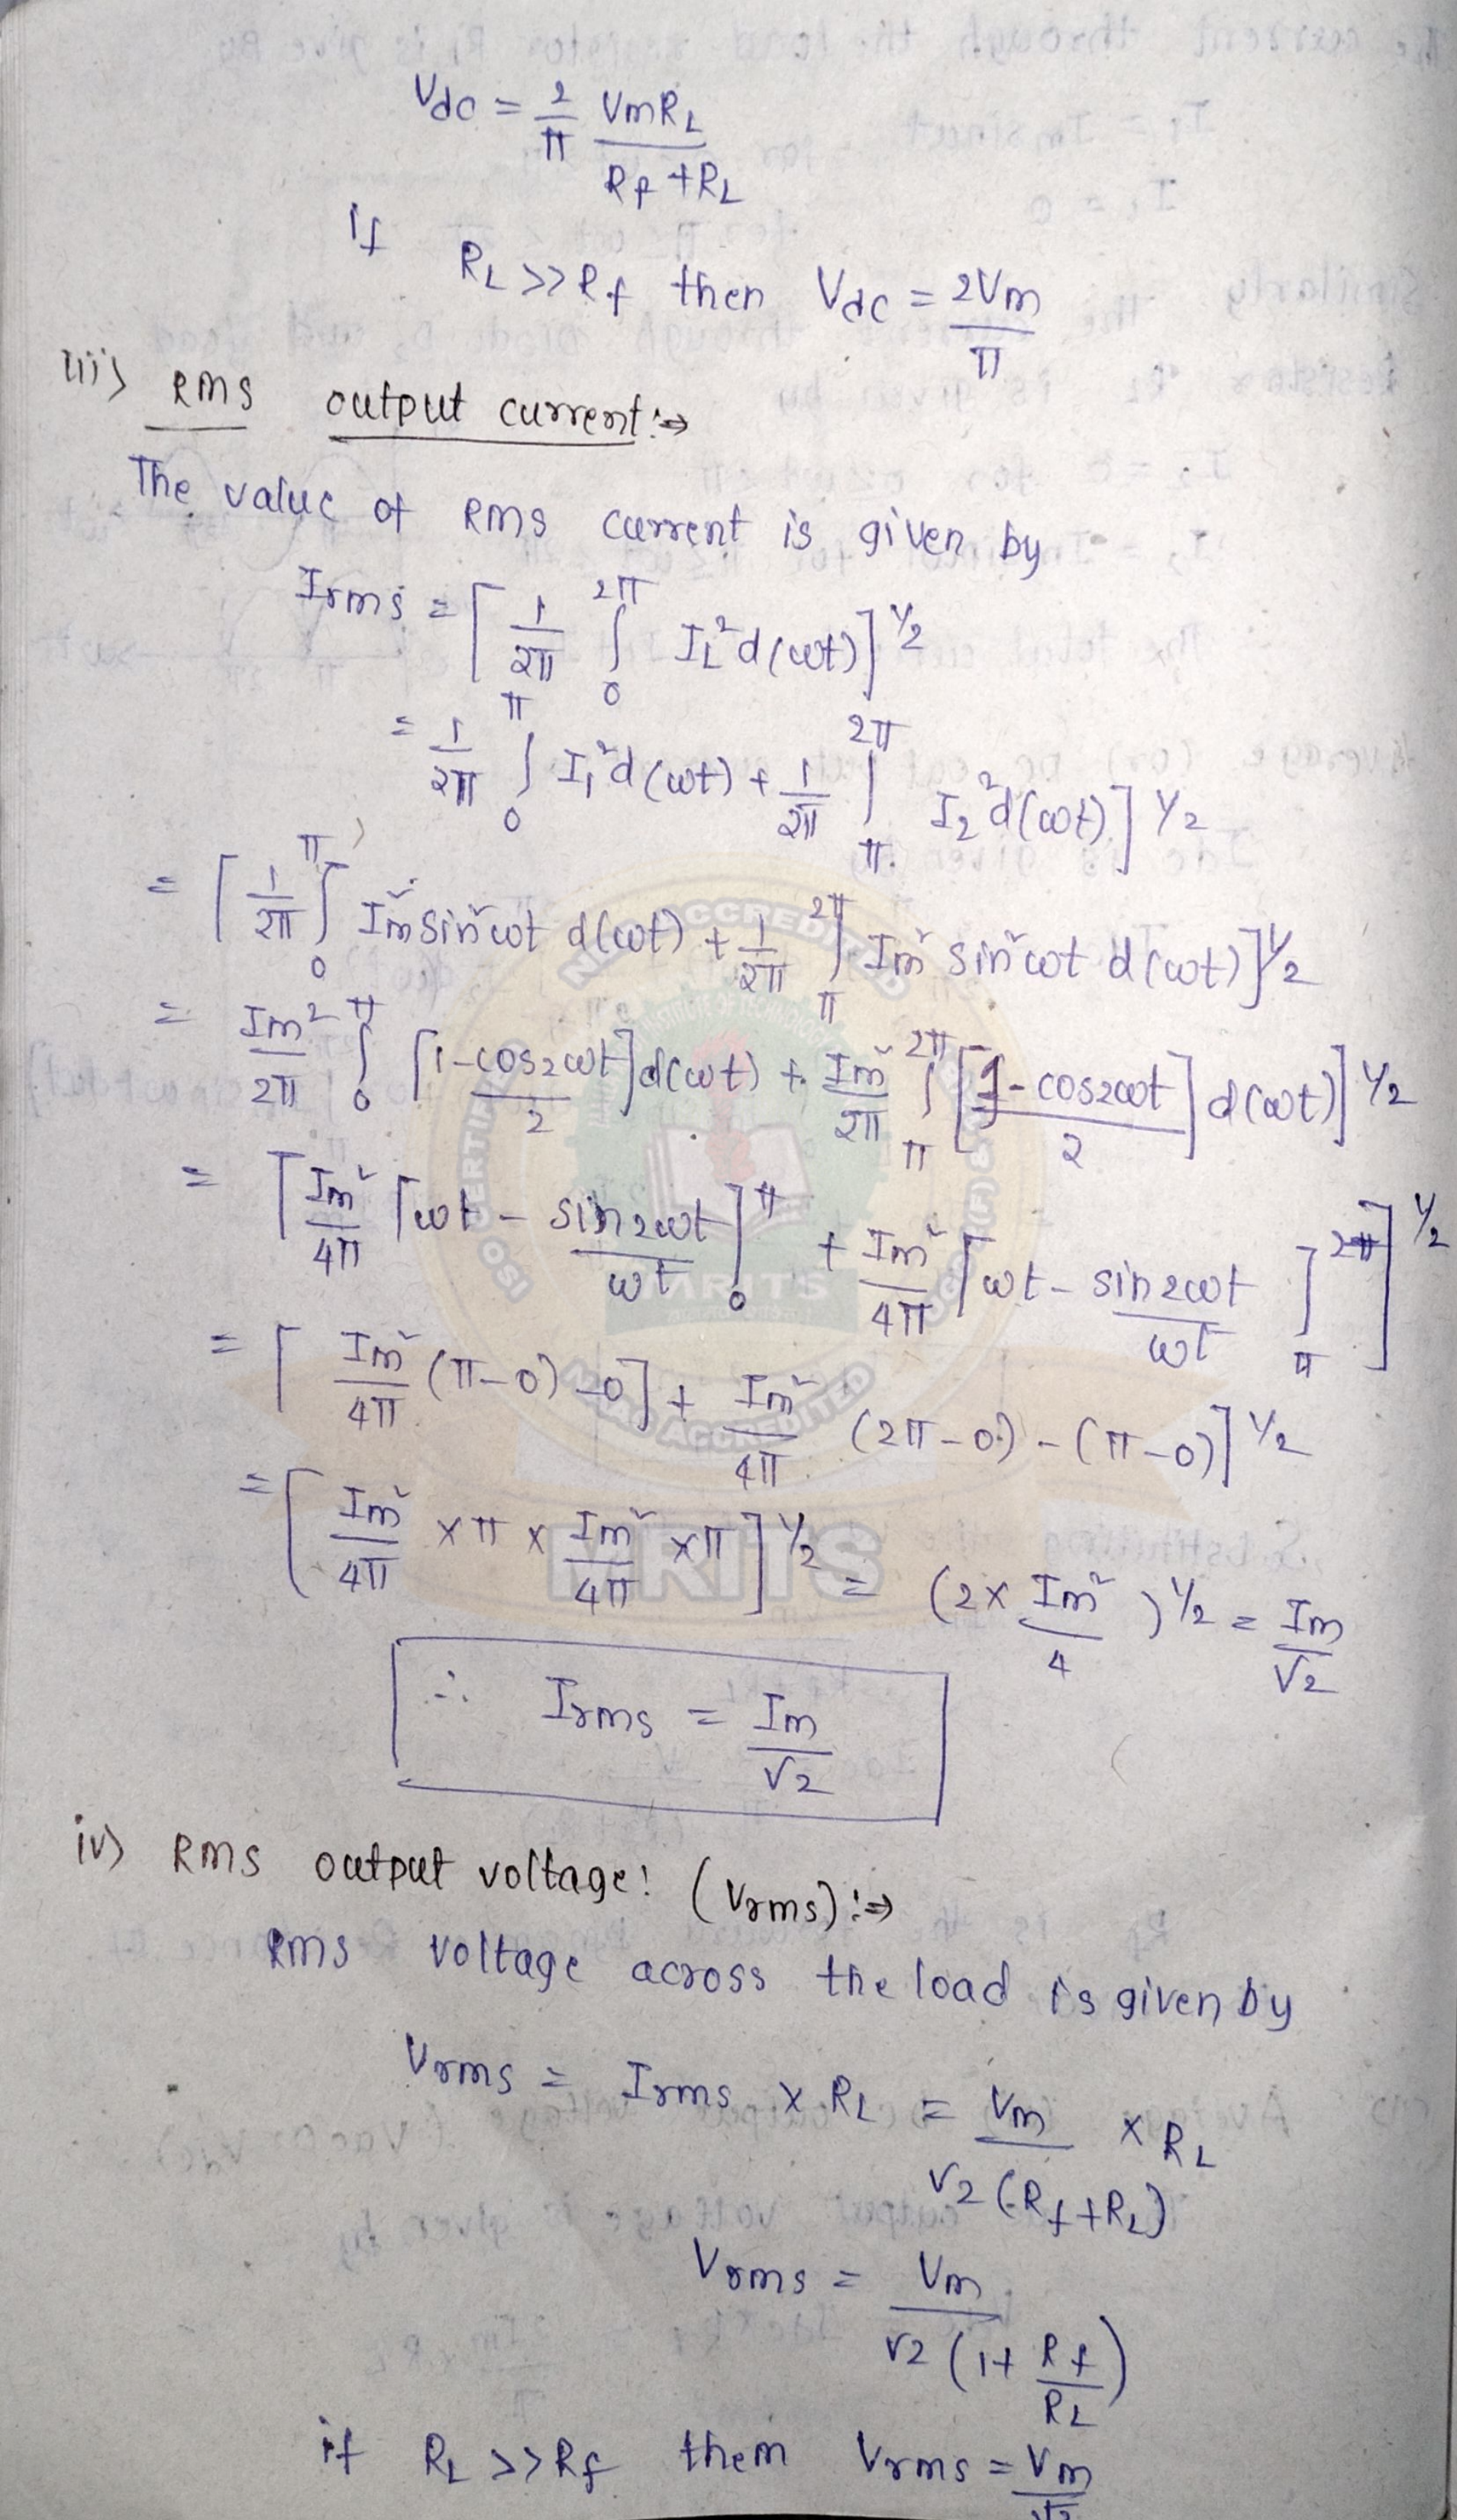 Vdc = 2/π VmRL/(Rf+RL)
If RL >> Rf then Vdc = 2Vm/π
iii) RMS output current:⇒
The value of RMS current is given by
Irms = [1/2π ∫₀^2π IL² d(ωt)]^1/2
= 1/2π ∫₀^π I1² d(ωt) + 1/2π ∫π^2π I2² d(ωt)]^1/2
= [1/2π ∫₀^π Im² sin²ωt d(ωt) + 1/2π ∫π^2π Im² sin²ωt d(ωt)]^1/2
= Im²/2π ∫₀^π [(1-cos2ωt)/2] d(ωt) + Im²/2π ∫π^2π [(1-cos2ωt)/2] d(ωt)]^1/2
= [Im²/4π [ωt - sin2ωt/ωt]₀^π + Im²/4π [ωt - sin2ωt/ωt]π^2π]^1/2
= [Im²/4π (π-0)-0] + Im²/4π (2π-0)-(π-0)]^1/2
= [Im²/4π × π × Im²/4π × π]^1/2 = (2× Im²/4)^1/2 = Im/√2
∴ Irms = Im/√2
iv) RMS output voltage: (Vrms):⇒
RMS voltage across the load is given by
Vrms = Irms × RL = Vm/√2(Rf+RL) × RL
Vrms = Vm/√2(1+Rf/RL)
if RL >> Rf them Vrms = Vm/√2
NAAC ACCREDITED
MRITS
NAAC ACCREDITED
MRITS